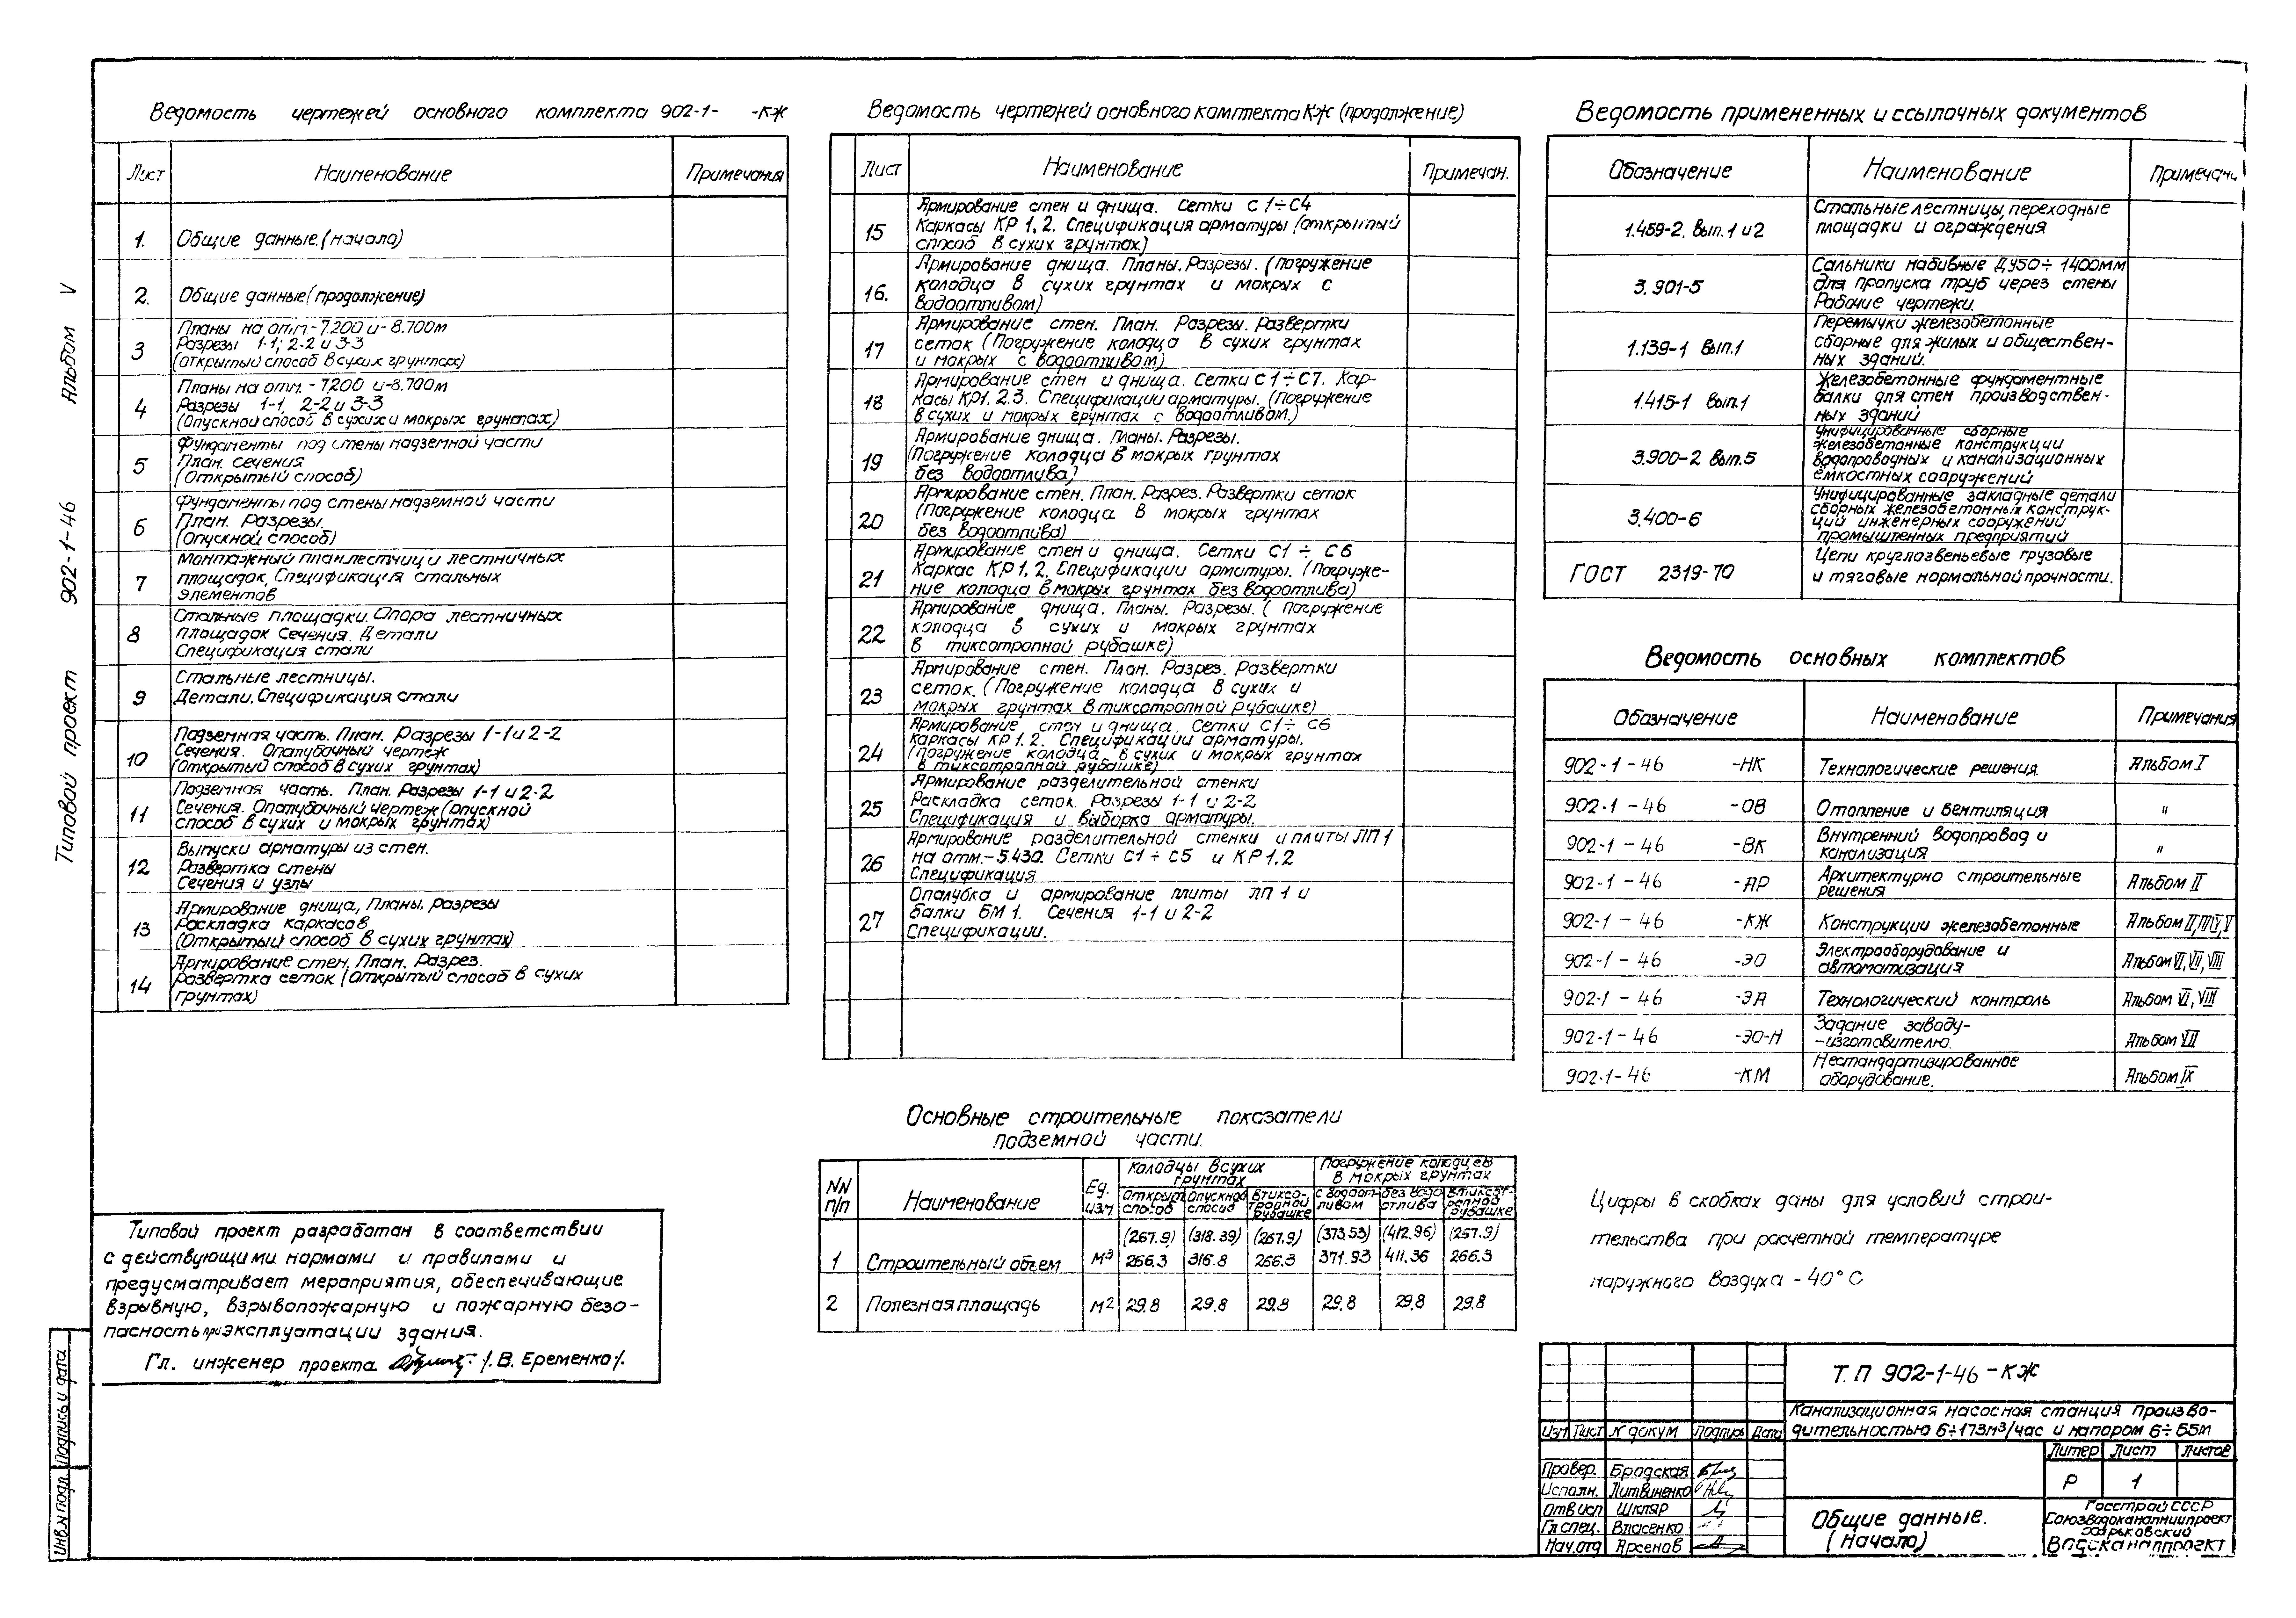 Альбом V
902-1-46
Типовой проект
Подпись и дата
Инв.N подл.
Ведомость чертежей основного комплекта 902-1- -КЖ
Лист Наименование Примечания
1. Общие данные.(начало)
2. Общие данные(продолжение)
3 Планы на отм.-7.200 и-8.700м
Разрезы 1-1; 2-2 и 3-3
(открытый способ в сухих грунтах)
4 Планы на отм. -7.200 и-8.700м
Разрезы 1-1, 2-2 и 3-3
(Опускной способ в сухих и мокрых грунтах)
5 Фундаменты под стены надземной части
План. Сечения
(Открытый способ)
6 Фундаменты под стены надземной части
План. Разрезы.
(Опускной способ)
7 Монтажный план лестниц и лестничных
площадок, Спецификация стальных
элементов
8 Стальные площадки. Опора лестничных
площадок Сечения. Детали
Спецификация стали
9 Стальные лестницы.
Детали. Спецификация стали
10 Подземная часть. План. Разрезы 1-1 и 2-2
Сечения. Опалубочный чертеж
(Открытый способ в сухих грунтах)
11 Подземная часть. План. Разрезы 1-1 и 2-2
Сечения. Опалубочный чертеж (опускной
способ в сухих и мокрых грунтах)
12 Выпуски арматуры из стен.
Развертка стены
Сечения и узлы
13 Армирование днища, Планы, разрезы
Раскладка каркасов
(Открытый способ в сухих грунтах)
14 Армирование стен, План. Разрез.
Развертка сеток (Открытый способ в сухих
грунтах)
Ведомость чертежей основного комплекта КЖ (продолжение)
Лист Наименование Примечан.
15 Армирование стен и днища. Сетки С1÷С4
Каркасы КР 1, 2. Спецификация арматуры (открытый
способ в сухих грунтах)
16. Армирование днища. Планы. Разрезы. (погружение
колодца в сухих грунтах и мокрых с
водоотливом)
17 Армирование стен. План. Разрезы. Развертки
сеток (Погружение колодца в сухих грунтах
и мокрых с водоотливом)
18 Армирование стен и днища. Сетки С1÷С7. Кар-
касы КР1, 2.3. Спецификации арматуры. (Погружение
в сухих и мокрых грунтах с водоотливом.)
19 Армирование днища. Планы. Разрезы.
(Погружение колодца в мокрых грунтах
без водоотлива)
20 Армирование стен. План. Разрез. Развертки сеток
(Погружение колодца в мокрых грунтах
без водоотлива)
21 Армирование стен и днища. Сетки С1 ÷ С6
Каркас КР 1, 2. Спецификации арматуры. (Погруже-
ние колодца в мокрых грунтах без водоотлива)
22 Армирование днища. Планы. Разрезы. ( Погружение
колодца в сухих и мокрых грунтах
в тиксотропной рубашке)
23 Армирование стен. План. Разрез. Развертки
сеток. (Погружение колодца в сухих и
мокрых грунтах в тиксотропной рубашке)
24 Армирование стен и днища. Сетки С1÷ С6
Каркасы КР 1.2. Спецификации арматуры.
(погружение колодца в сухих и мокрых грунтах
в тиксотропной рубашке)
25 Армирование разделительной стенки
Раскладка сеток. Разрезы 1-1 и 2-2
Спецификация и выборка арматуры.
26 Армирование разделительной стенки и плиты ЛП1
на отм.-5.430. Сетки С1÷С5 и КР1,2
Спецификация
27 Опалубка и армирование плиты ЛП 1 и
балки БМ 1. Сечения 1-1 и 2-2
Спецификации.
Ведомость примененных и ссылочных документов
Обозначение Наименование Примечани
1.459-2. вып. 1 и 2 Стальные лестницы, переходные
площадки и ограждения
3.901-5 Сальники набивные ДУ50÷ 1400мм
для пропуска труб через стены
Рабочие чертежи.
1.139-1 вып.1 Перемычки железобетонные
сборные для жилых и обществен-
ных зданий.
1.415-1 вып.1 Железобетонные фундаментные
балки для стен производствен-
ных зданий
3.900-2 вып.5 Унифицированные сборные
железобетонные конструкции
водопроводных и канализационных
емкостных сооружений
3.400-6 Унифицированные закладные детали
сборных железобетонных конструк-
ций инженерных сооружений
промышленных предприятий
ГОСТ 2319-70 Цепи круглозвеньевые грузовые
и тяговые нормальной прочности.
Ведомость основных комплектов
Обозначение Наименование Примечания
902-1-46 -НК Технологические решения. Альбом I
902-1-46 -ОВ Отопление и вентиляция "
902-1-46 -ВК Внутренний водопровод и
канализация "
902-1-46 -АР Архитектурно строительные
решения Альбом II
902-1-46 -КЖ Конструкции железобетонные Альбом II,III,IV,V
902-1-46 -ЭО Электрооборудование и
автоматизация Альбом VI,VII,VIII
902-1-46 -ЭА Технологический контроль Альбом VI,VIII
902-1-46 -ЭО-Н Задание заводу-
-изготовителю. Альбом VII
902-1-46 -КМ Нестандартизированное
оборудование. Альбом IX
Основные строительные показатели
подземной части.
NN п/п Наименование Ед. изм Колодцы в сухих грунтах Погружение колодцев в мокрых грунтах
Открыт способ Опускной способ В тиксотропной рубашке с водоотливом без водоотлива в тиксотропной рубашке
(267.9) (318.39) (267.9) (373.53) (412.96) (267.9)
1 Строительный объем м³ 266.3 316.8 266.3 371.93 411.36 266.3
2 Полезная площадь м² 29.8 29.8 29.8 29.8 29.8 29.8
Цифры в скобках даны для условий строи-
тельства при расчетной температуре
наружного воздуха -40°С
Типовой проект разработан в соответствии
с действующими нормами и правилами и
предусматривает мероприятия, обеспечивающие
взрывную, взрывопожарную и пожарную безо-
пасность при эксплуатации здания.
Гл. инженер проекта /.В. Еременко/.
Т.П 902-1-46 -КЖ
Канализационная насосная станция произво-
дительностью 6÷173м³/час и напором 6÷55м
Изм Лист N докум Подпись Дата
Провер. Бродская
Исполн. Литвиненко
Отв исп Шкляр
Гл спец. Власенко
Нач.отд Арсенов
Литер Лист Листов
Р 1
Общие данные.
(начало)
Госстрой СССР
Союзводоканалниипроект
Харьковский
Водоканалпроект